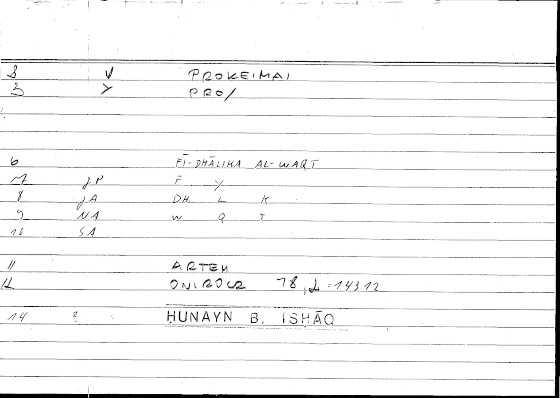 2 V PROKEIMAI
3 Y PRO/
6 FĪ-DHĀLIKA AL-WAQT
7 JP F Y
8 JA DH L K
9 NA W Q T
10 SA
11 ARTEM
12 ONIROCR 78, 143.12
14 2 ḤUNAYN B. ISḤĀQ